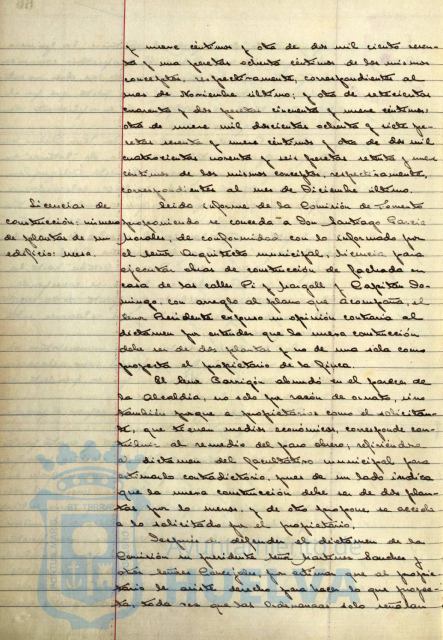 y nueve céntimos y otra de dos mil ciento seten-
ta y una pesetas ochenta céntimos de los mismos
conceptos, respectivamente, correspondientes al
mes de Noviembre último; y otra de setecientas
cuarenta y dos pesetas cincuenta y nueve céntimos,
otra de nueve mil doscientas ochenta y siete pe-
setas y nueve céntimos y otra de dos mil
cuatrocientas noventa y seis pesetas setenta y nueve
céntimos de los mismos conceptos, respectivamente,
correspondientes al mes de Diciembre último.
Licencias de
construcción: número
de plantas de un
edificio:
Leído informe de la Comisión de Fomento
proponiendo se conceda a Don Santiago García
Morales, de conformidad con lo informado por
el señor Arquitecto municipal, licencia para
ejecutar obras de construcción de fachada en
casa de las calles Pi y Margall y Capitán Do-
mingo, con arreglo al plano que acompaña, el
señor Presidente expuso su opinión contraria al
dictamen por entender que la nueva construcción
debe ser de dos plantas y no de una sola como
proyecta el propietario de la finca.
El señor Garrigón abundó en el parecer de
la Alcaldía, no solo por razón de ornato, sino
también porque a propietarios como el solicitan-
te, que tienen medios económicos, corresponde con-
tribuir al remedio del paro obrero;
al dictamen del facultativo municipal para
estimarlo contradictorio, pues de un lado indica
que la nueva construcción debe ser de dos plan-
tas por lo menos, y de otro propone se acceda
a lo solicitado por el propietario.
Después de defender el dictamen de la
Comisión su presidente señor Martínez Sánchez y
otros señores Concejales, por estimar que al propie-
tario le asiste derecho para hacer lo que proyec-
ta, toda vez que las Ordenanzas solo señalan